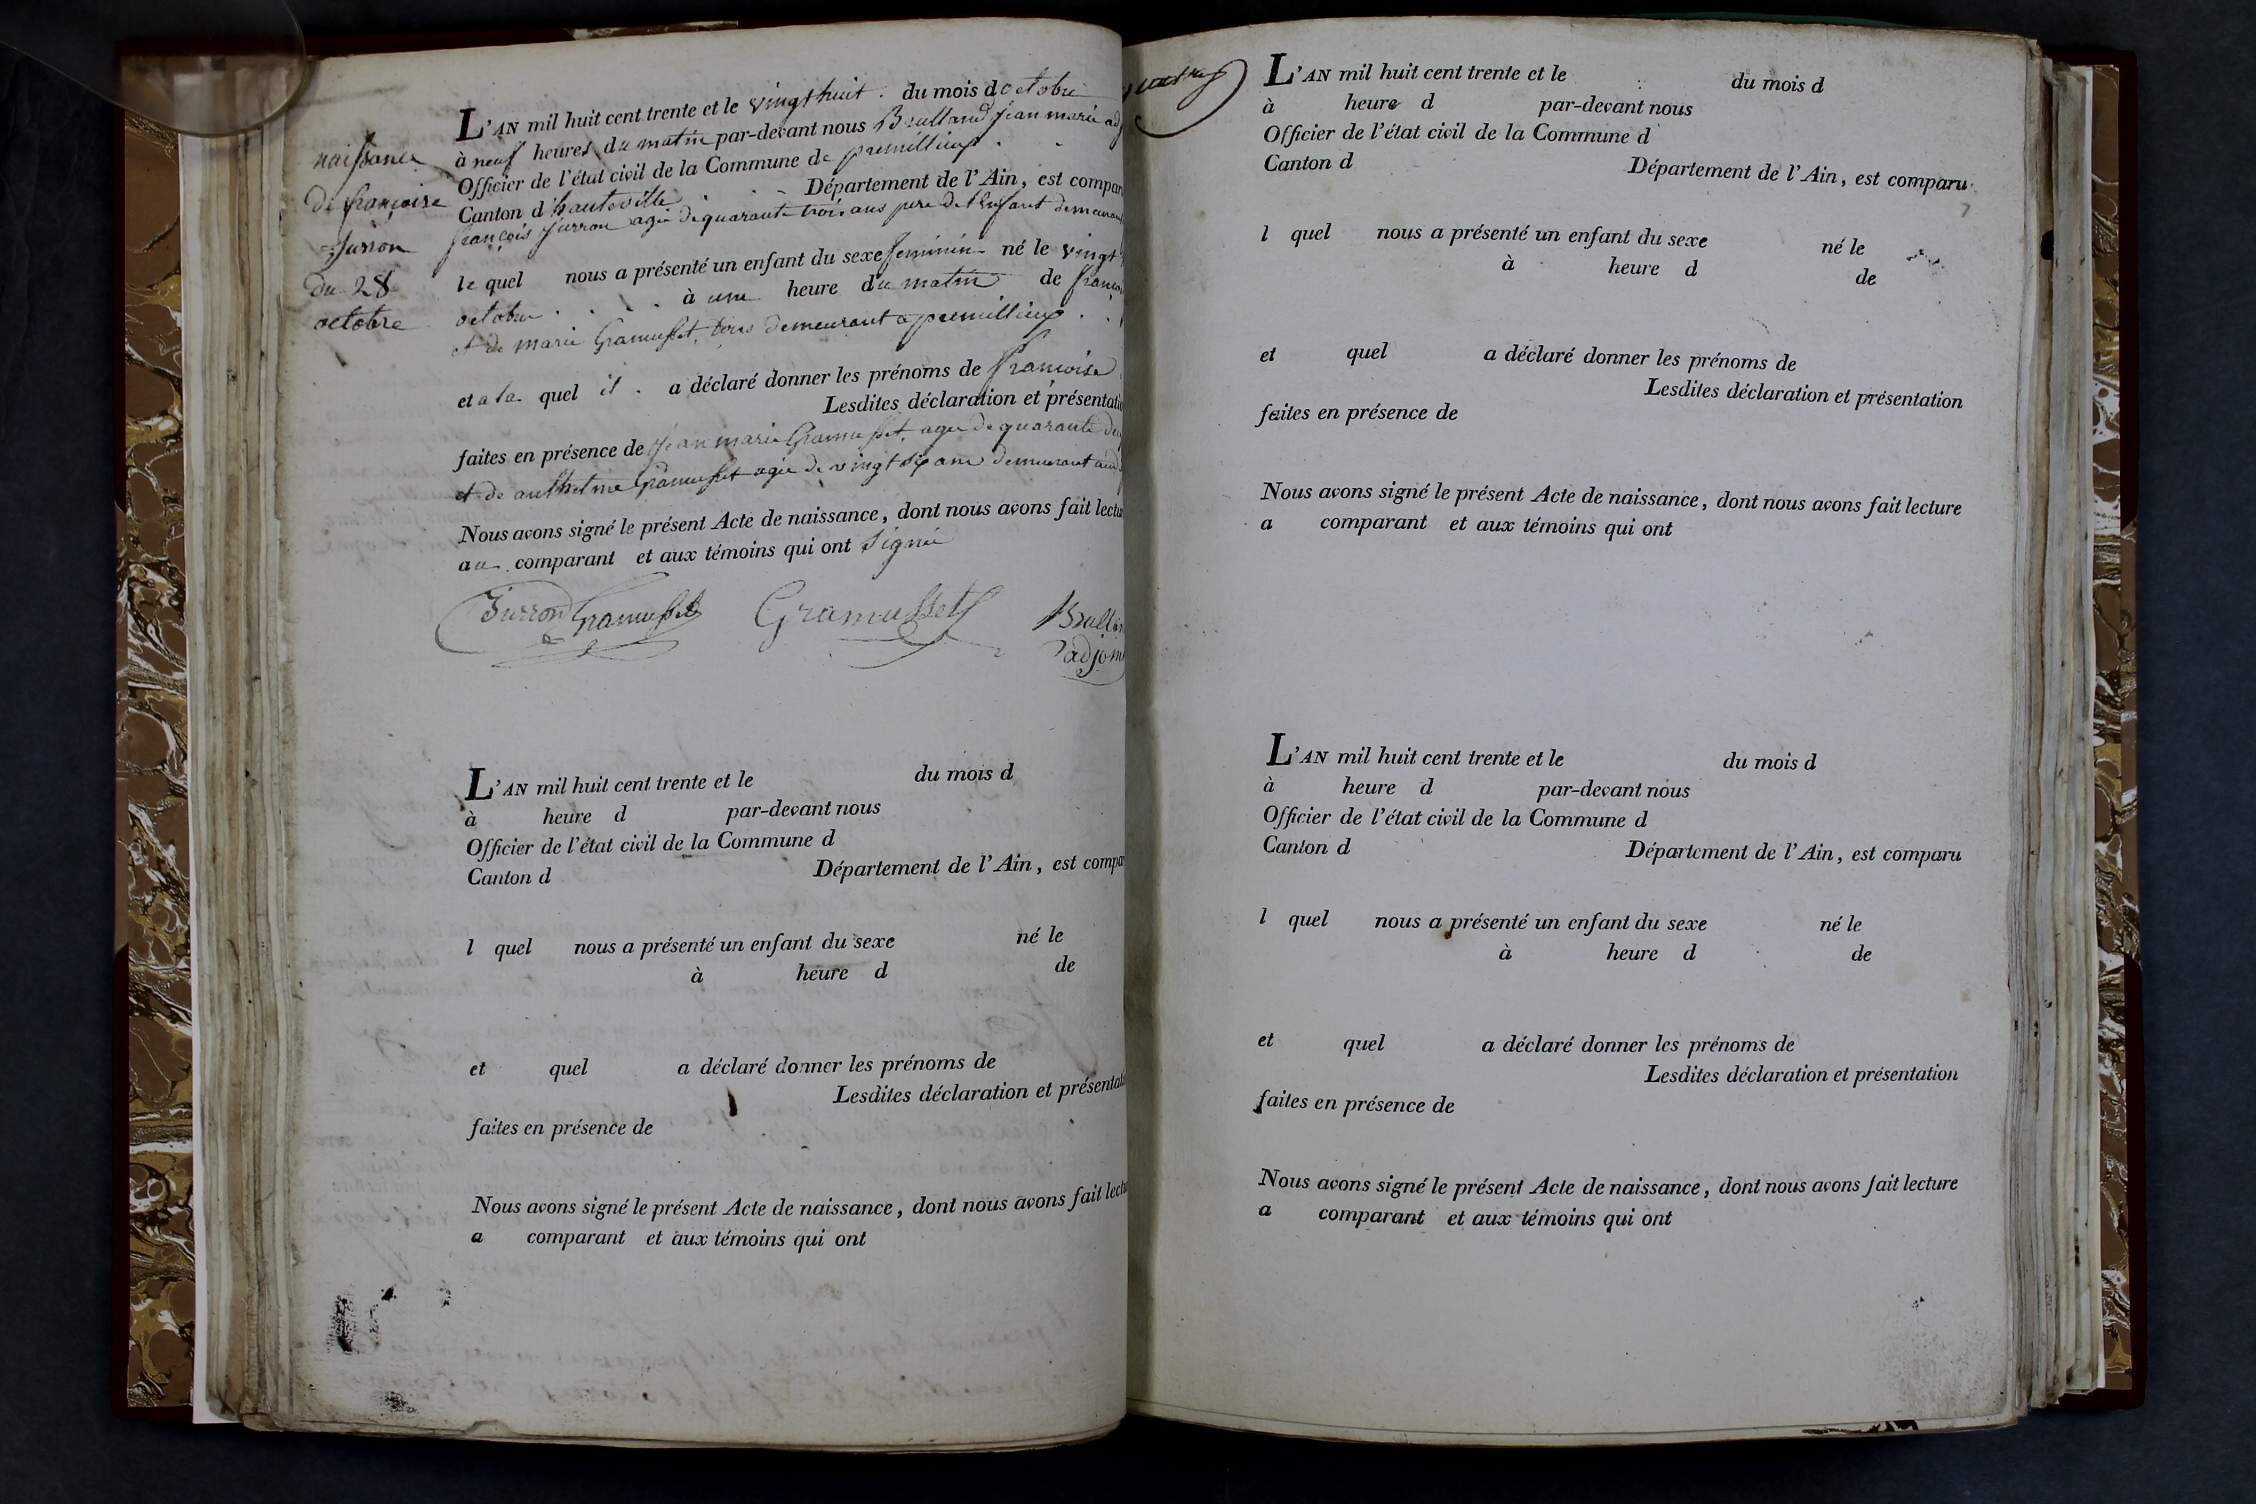 naissance
de françoise
Jurron
du 28
octobre
L'AN mil huit cent trente et le vingt huit . du mois d octobre
à neuf heures du matin par-devant nous Brulland jean marie adj
Officier de l'état civil de la Commune de premillieux .
Canton d'hauteville Département de l'Ain, est compar
françois Jurron agé de quarante trois ans pere de l'enfant demeurant
le quel nous a présenté un enfant du sexe feminin né le vingt
octobre . . . . à une heure du matin de françoi
et de marie Gramusset, tous demeurant a premillieux . .
et a la quel il . a déclaré donner les prénoms de françoise
Lesdites déclaration et présentatio
faites en présence de jean marie Gramusset, agé de quarante deux
et de anthelme Gramusset agé de vingt six ans demeurant aud
Nous avons signé le présent Acte de naissance, dont nous avons fait lectur
au comparant et aux témoins qui ont signé
Jurron Gramusset Gramusset Brullan
adjoin
L'AN mil huit cent trente et le du mois d
à heure d par-devant nous
Officier de l'état civil de la Commune d
Canton d Département de l'Ain, est compar
l quel nous a présenté un enfant du sexe né le
à heure d de
et quel a déclaré donner les prénoms de
Lesdites déclaration et présentati
faites en présence de
Nous avons signé le présent Acte de naissance, dont nous avons fait lectu
a comparant et aux témoins qui ont
L'AN mil huit cent trente et le du mois d
à heure d par-devant nous
Officier de l'état civil de la Commune d
Canton d Département de l'Ain, est comparu
7
l quel nous a présenté un enfant du sexe né le
à heure d de
et quel a déclaré donner les prénoms de
Lesdites déclaration et présentation
faites en présence de
Nous avons signé le présent Acte de naissance, dont nous avons fait lecture
a comparant et aux témoins qui ont
L'AN mil huit cent trente et le du mois d
à heure d par-devant nous
Officier de l'état civil de la Commune d
Canton d Département de l'Ain, est comparu
l quel nous a présenté un enfant du sexe né le
à heure d de
et quel a déclaré donner les prénoms de
Lesdites déclaration et présentation
faites en présence de
Nous avons signé le présent Acte de naissance, dont nous avons fait lecture
a comparant et aux témoins qui ont